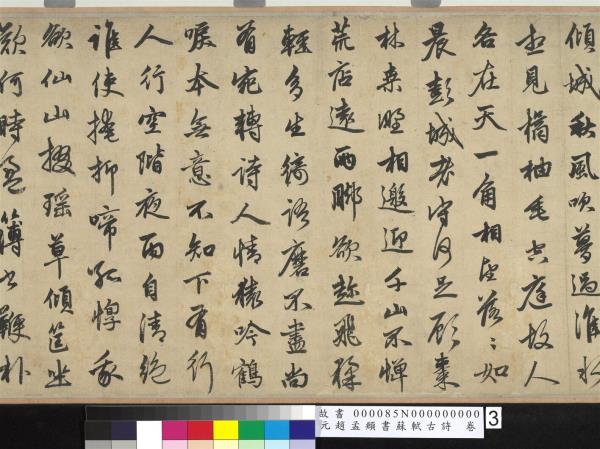 傾城秋風吹夢過淮水
想見橘柚垂空庭故人
各在天一角相望落々如
晨彭城老守何足顧棗
林桑野相邀迎千山不憚
荒店遠兩腳欲趁飛猱
輕多生綺語磨不盡尚
有宛轉詩人情猿吟鶴
唳本無意不知下有行
人行空階夜雨自清絕
誰使掩抑啼孤惸我
欲仙山掇瑤草傾筐坐
歎何時盈簿書鞭扑
故書 000085N000000000
元趙孟頫書蘇軾古詩 卷
3